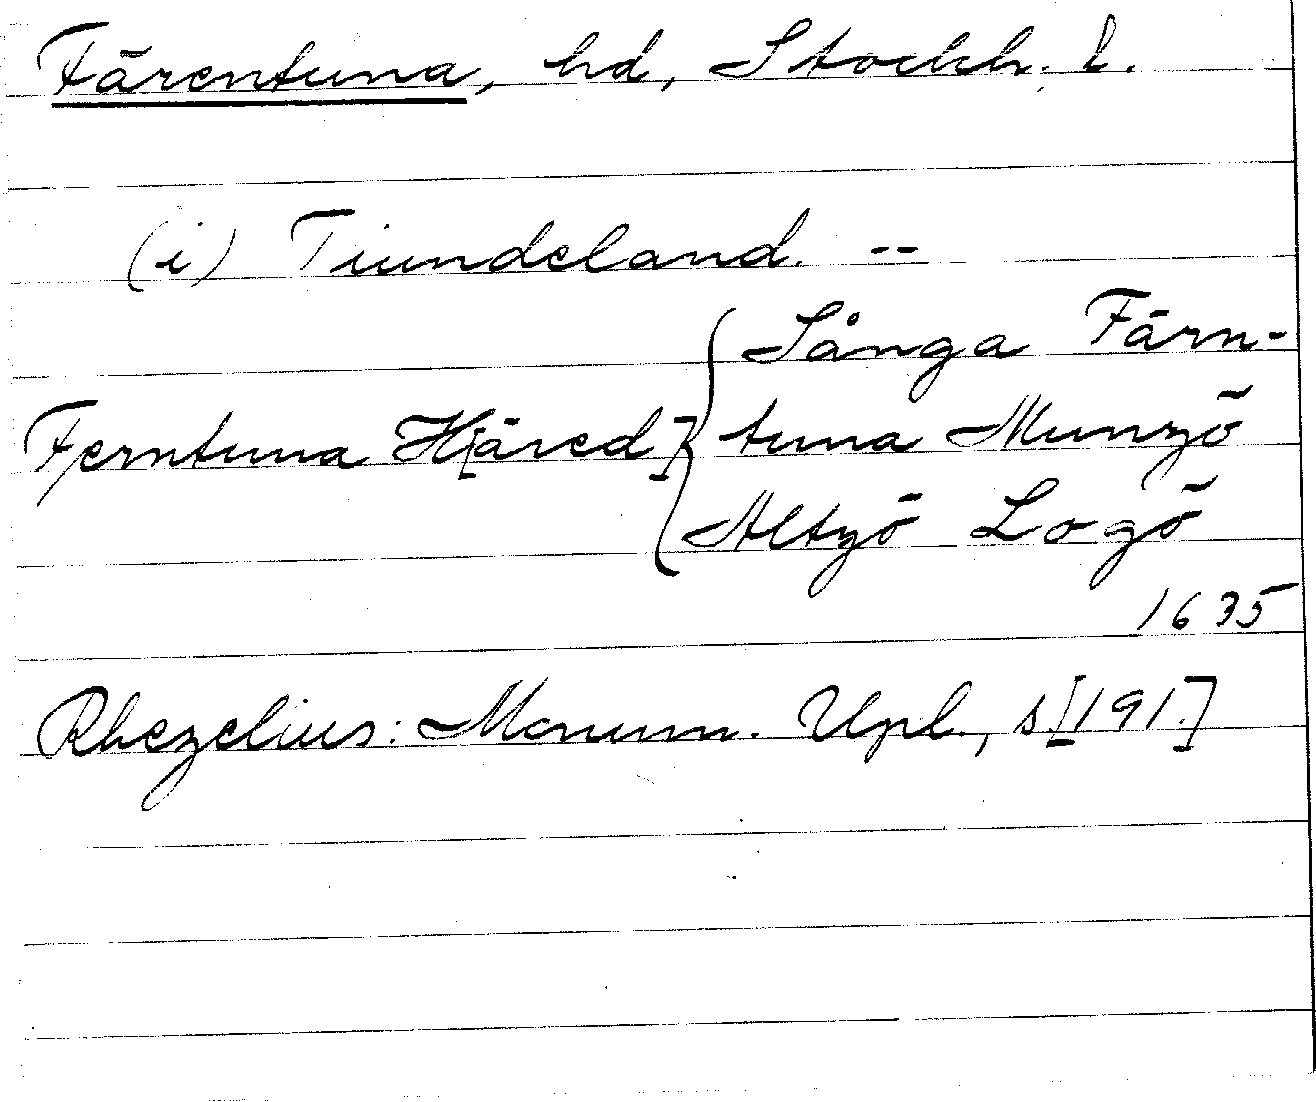 Färentuna, hd, Stockh. l.
(i) Tiundeland. --
Sånga Färn-
Ferntuna H[äred] tuna Munzö
Altzö Logö
1635
Rhezelius: Monum. Upl., s[191.]